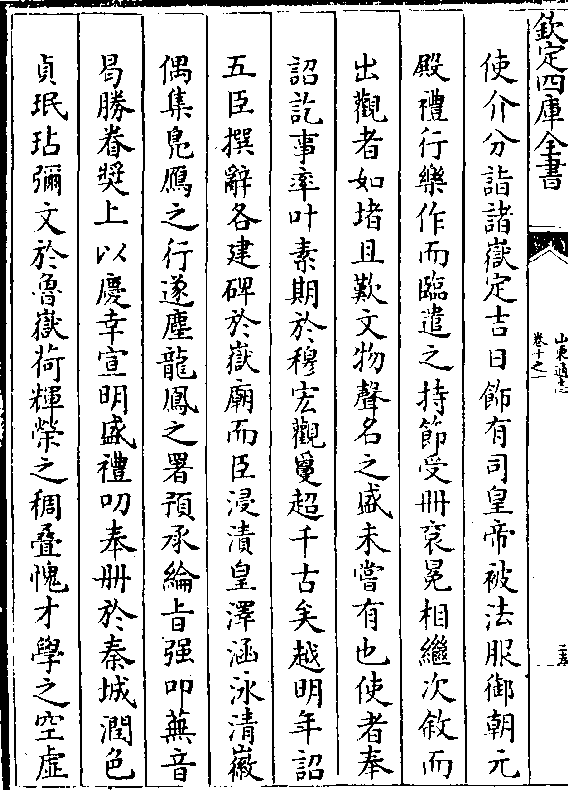 欽定四庫全書
山東通志
卷十之一
使介分詣諸嶽定吉日飾有司皇帝被法服御朝元
殿禮行樂作而臨遣之持節受冊衮冕相繼次敘而
出觀者如堵且歎文物聲名之盛未嘗有也使者奉
詔訖事率叶素期於穆宏觀敻超千古矣越明年詔
五臣撰辭各建碑於嶽廟而臣浸漬皇澤涵泳清徽
偶集鳧鴈之行遂塵龍鳳之署預承綸旨强叩蕪音
曷勝眷奬上以慶幸宣明盛禮叨奉冊於秦城潤色
貞珉玷彌文於魯嶽荷輝榮之稠疊愧才學之空虛